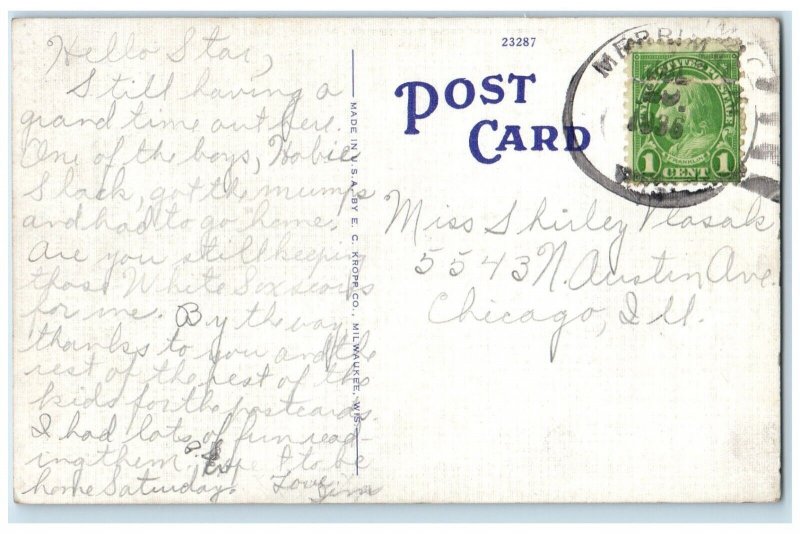 Hello Star,
Still having a
grand time out here.
One of the boys, Hobie
Slack, got the mumps
and had to go home.
Are you still keeping
those White Sox scores
for me. By the way
thanks to you and the
rest of the rest of the
kids for the postcards.
I had lots of fun read-
ing them. hope to be
home Saturday. Love
Jim
MADE IN U.S.A. BY E. C. KROPP CO., MILWAUKEE, WIS.
23287
POST
CARD
MERRI
1936
UNITED STATES POSTAGE
FRANKLIN
1 CENT 1
Miss Shirley Plasak
5543 N. Austin Ave.
Chicago, Ill.